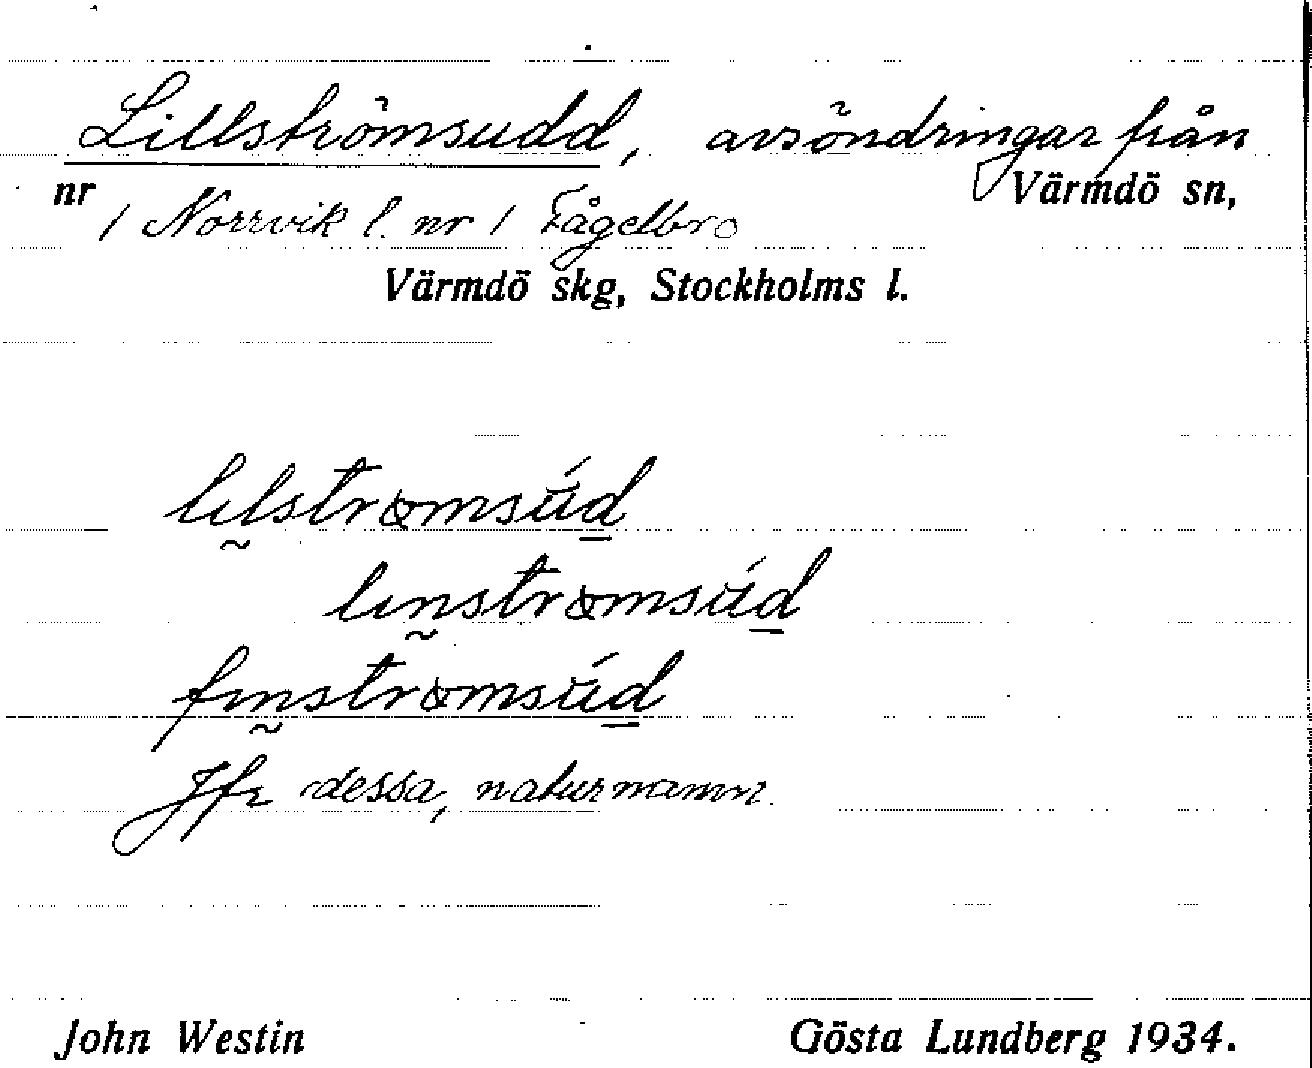 Lillströmsudd, avsöndringar från
nr 1 Norrvik l. nr 1 Fågelbro Värmdö sn,
Värmdö skg, Stockholms l.
lılströmsúd
lınströmsúd
fınströmsúd
Jfr dessa, naturnamn.
John Westin Gösta Lundberg 1934.